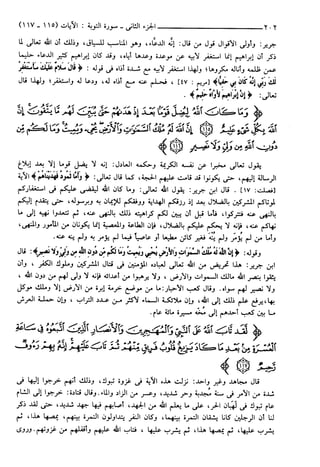 ٢٠٢ الجزء الثاني - سورة التوبة : الآيات (١١٥ - ١١٧)
جرير: وأولى الأقوال قول من قال: إنه الدعاء، وهو المناسب للسياق، وذلك أن الله تعالى لما
ذكر أن إبراهيم إنما استغفر لأبيه عن موعدة وعدها أياه، وقد كان إبراهيم كثير الدعاء حليما
عمن ظلمه وأناله مكروها؛ ولهذا استغفر لأبيه مع شدة أذاه في قوله : ﴿ قَالَ سَلَامٌ عَلَيْكَ سَأَسْتَغْفِرُ
لَكَ رَبِّي إِنَّهُ كَانَ بِي حَفِيًّا ﴾ [مريم : ٤٧] ، فحلم عنه مع أذاه له، ودعا له واستغفر؛ ولهذا قال
تعالى: ﴿ إِنَّ إِبْرَاهِيمَ لَأَوَّاهٌ حَلِيمٌ ﴾ .
وَمَا كَانَ اللَّهُ لِيُضِلَّ قَوْمًا بَعْدَ إِذْ هَدَاهُمْ حَتَّى يُبَيِّنَ لَهُم مَّا يَتَّقُونَ إِنَّ اللَّهَ بِكُلِّ شَيْءٍ عَلِيمٌ
إِنَّ اللَّهَ لَهُ مُلْكُ السَّمَاوَاتِ وَالْأَرْضِ يُحْيِي وَيُمِيتُ وَمَا لَكُم مِّن دُونِ
اللَّهِ مِن وَلِيٍّ وَلَا نَصِيرٍ
يقول تعالى مخبرا عن نفسه الكريمة وحكمه العادل: إنه لا يضل قوما إلا بعد إبلاغ
الرسالة إليهم، حتى يكونوا قد قامت عليهم الحجة، كما قال تعالى: ﴿ وَأَمَّا ثَمُودُ فَهَدَيْنَاهُمْ ﴾ الآية
[فصلت: ١٧] . قال ابن جرير: يقول الله تعالى: وما كان الله ليقضي عليكم في استغفاركم
لموتاكم المشركين بالضلال بعد إذ رزقكم الهداية ووفقكم للإيمان به وبرسوله، حتى يتقدم إليكم
بالنهي عنه فتتركوا، فأما قبل أن يبين لكم كراهيته ذلك بالنهي عنه، ثم تتعدوا نهيه إلى ما
نهاكم عنه، فإنه لا يحكم عليكم بالضلال، فإن الطاعة والمعصية إنما يكونان من المأمور والمنهي،
وأما من لم يؤمر ولم ينه فغير كائن مطيعا أو عاصيا فيما لم يؤمر به ولم ينه عنه.
وقوله: ﴿ إِنَّ اللَّهَ لَهُ مُلْكُ السَّمَاوَاتِ وَالْأَرْضِ يُحْيِي وَيُمِيتُ وَمَا لَكُم مِّن دُونِ اللَّهِ مِن وَلِيٍّ وَلَا نَصِيرٍ ﴾ : قال
ابن جرير: هذا تحريض من الله تعالى لعباده المؤمنين في قتال المشركين وملوك الكفر ، وأن
يثقوا بنصر الله مالك السموات والأرض ، ولا يرهبوا من أعدائه فإنه لا ولي لهم من دون الله ،
ولا نصير لهم سواه. وقال كعب الأحبار: ما من موضع خرمة إبرة من الأرض إلا وملك موكل
بها، يرفع علم ذلك إلى الله، وإن ملائكة السماء لأكثر من عدد التراب ، وإن حملة العرش
ما بين كعب أحدهم إلى مخه مسيرة مائة عام.
لَّقَد تَّابَ اللَّهُ عَلَى النَّبِيِّ وَالْمُهَاجِرِينَ وَالْأَنصَارِ الَّذِينَ اتَّبَعُوهُ فِي سَاعَةِ
الْعُسْرَةِ مِن بَعْدِ مَا كَادَ يَزِيغُ قُلُوبُ فَرِيقٍ مِّنْهُمْ ثُمَّ تَابَ عَلَيْهِمْ إِنَّهُ بِهِمْ رَءُوفٌ
رَّحِيمٌ
قال مجاهد وغير واحد: نزلت هذه الآية في غزوة تبوك، وذلك أنهم خرجوا إليها في
شدة من الأمر في سنة مجدبة وحر شديد، وعسر من الزاد والماء. وقال قتادة: خرجوا إلى الشام
عام تبوك في لهبان الحر، على ما يعلم الله من الجهد، أصابهم فيها جهد شديد، حتى لقد ذكر
لنا أن الرجلين كانا يشقان التمرة بينهما، وكان النفر يتداولون التمرة بينهم، يمصها هذا، ثم
يشرب عليها، ثم يمصها هذا، ثم يشرب عليها ، فتاب الله عليهم وأقفلهم من غزوتهم. وروى